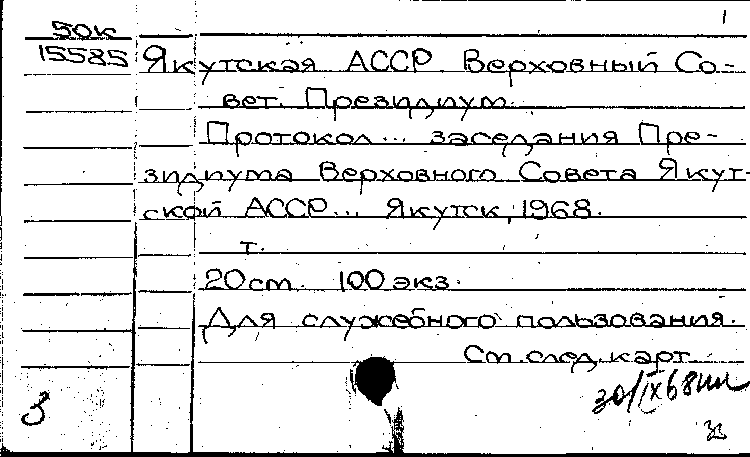 1
50к
15585 Якутская АССР. Верховный Со-
вет. Президиум.
Протокол... заседания Пре-
зидиума Верховного Совета Якут-
ской АССР... Якутск, 1968.
т.
20 см. 100 экз.
Для служебного пользования.
См. след. карт.
30/IX 68
З